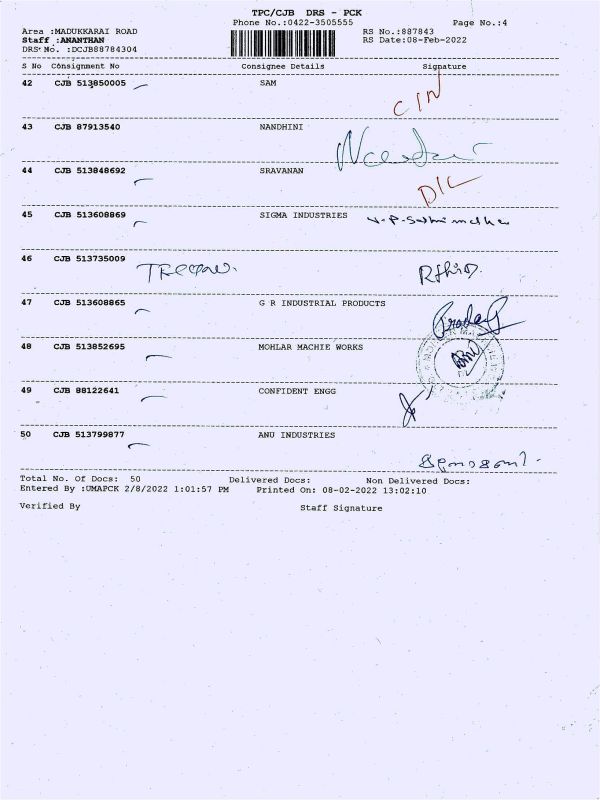 TPC/CJB DRS - PCK
Phone No.:0422-3505555 Page No.:4
Area :MADUKKARAI ROAD RS No.:887843
Staff :ANANTHAN RS Date:08-Feb-2022
DRS No. :DCJB88784304
S No Consignment No Consignee Details Signature
42 CJB 513850005 SAM
CIN
43 CJB 87913540 NANDHINI
44 CJB 513848692 SRAVANAN
DIL
45 CJB 513608869 SIGMA INDUSTRIES
46 CJB 513735009
47 CJB 513608865 G R INDUSTRIAL PRODUCTS
48 CJB 513852695 MOHLAR MACHIE WORKS
49 CJB 88122641 CONFIDENT ENGG
50 CJB 513799877 ANU INDUSTRIES
Total No. Of Docs: 50 Delivered Docs: Non Delivered Docs:
Entered By :UMAPCK 2/8/2022 1:01:57 PM Printed On: 08-02-2022 13:02:10
Verified By Staff Signature